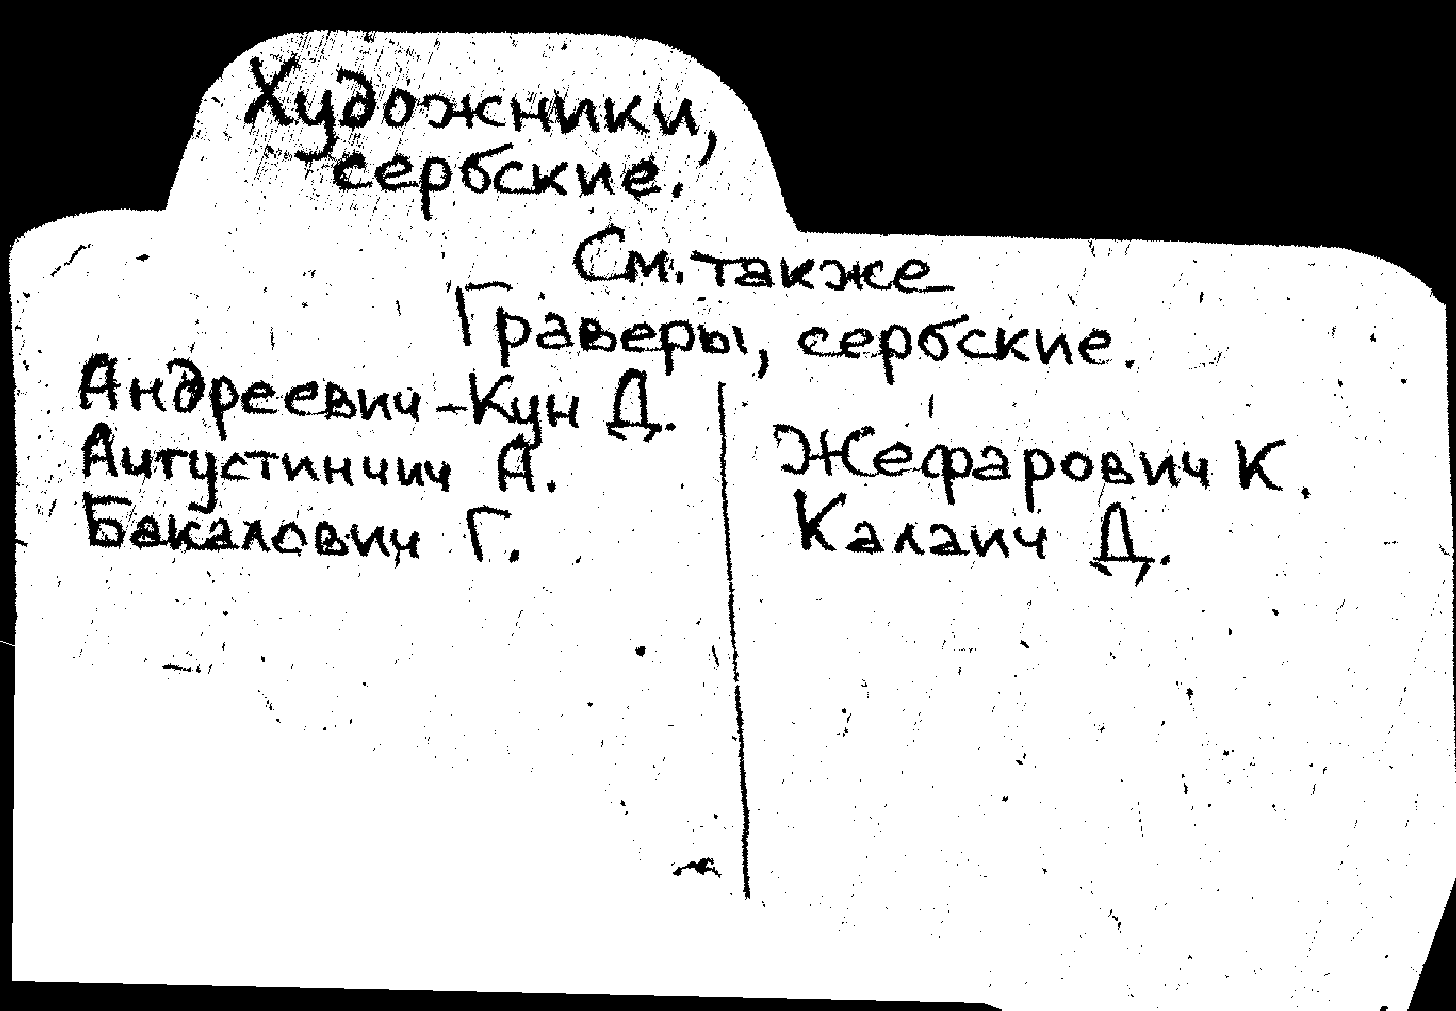 Художники,
сербские.
См. также
Граверы, сербские.
Андреевич-Кун Д.
Аугустинчич А.
Бакалович Г.
Жефарович К.
Калаич Д.